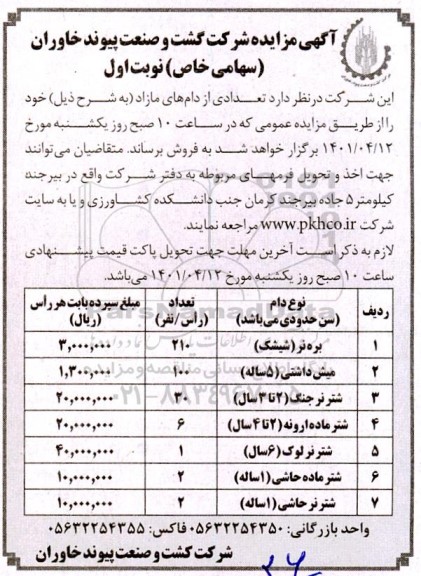 آگهی مزایده شرکت گشت و صنعت پیوند خاوران
(سهامی خاص) نوبت اول
این شرکت درنظر دارد تعدادی از دام‌های مازاد (به شرح ذیل) خود
را از طریق مزایده عمومی که در ساعت ۱۰ صبح روز یکشنبه مورخ
۱۴۰۱/۰۴/۱۲ برگزار خواهد شد به فروش برساند. متقاضیان می‌توانند
جهت اخذ و تحویل فرمهای مربوطه به دفتر شرکت واقع در بیرجند
کیلومتر ۵ جاده بیرجند کرمان جنب دانشکده کشاورزی و یا به سایت
شرکت www.pkhco.ir مراجعه نمایند.
لازم به ذکر است آخرین مهلت جهت تحویل پاکت قیمت پیشنهادی
ساعت ۱۰ صبح روز یکشنبه مورخ ۱۴۰۱/۰۴/۱۲ می‌باشد.
ردیف نوع دام (سن حدودی می‌باشد) تعداد (رأس/نفر) مبلغ سپرده بابت هر رأس (ریال)
۱ بره نر (شیشگ) ۲۱۰ ۳,۰۰۰,۰۰۰
۲ میش داشتی (۵ساله) ۱۰۰ ۱,۳۰۰,۰۰۰
۳ شتر نر جنگ (۲تا۳سال) ۳۰ ۲۰,۰۰۰,۰۰۰
۴ شتر ماده ارونه (۲تا۴سال) ۶ ۲۰,۰۰۰,۰۰۰
۵ شتر نر لوک (۶سال) ۱ ۴۰,۰۰۰,۰۰۰
۶ شتر ماده حاشی (۱ساله) ۲ ۱۰,۰۰۰,۰۰۰
۷ شتر نر حاشی (۱ساله) ۲ ۱۰,۰۰۰,۰۰۰
واحد بازرگانی: ۰۵۶۳۲۲۵۴۳۵۰ فاکس: ۰۵۶۳۲۲۵۴۳۵۵
شرکت کشت و صنعت پیوند خاوران
ParsNamadData
۰۲۱-۸۸۳۴۹۶۷۰